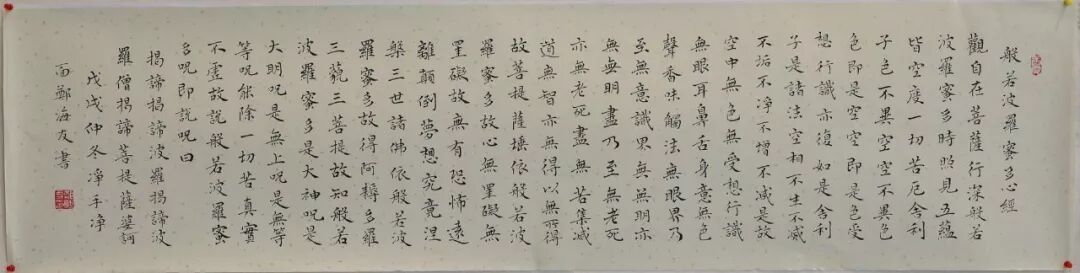 般若波羅蜜多心經
觀自在菩薩行深般若
波羅蜜多時照見五蘊
皆空度一切苦厄舍利
子色不異空空不異色
色即是空空即是色受
想行識亦復如是舍利
子是諸法空相不生不滅
不垢不淨不增不減是故
空中無色無受想行識
無眼耳鼻舌身意無色
聲香味觸法無眼界乃
至無意識界無無明亦
無無明盡乃至無老死
亦無老死盡無苦集滅
道無智亦無得以無所得
故菩提薩埵依般若波
羅蜜多故心無罣礙無
罣礙故無有恐怖遠
離顛倒夢想究竟涅
槃三世諸佛依般若波
羅蜜多故得阿耨多羅
三藐三菩提故知般若
波羅蜜多是大神咒是
大明咒是無上咒是無等
等咒能除一切苦真實
不虛故說般若波羅蜜
多咒即說咒曰
揭諦揭諦波羅揭諦波
羅僧揭諦菩提薩婆訶
戊戌仲冬淨手淨
面鄭海友書